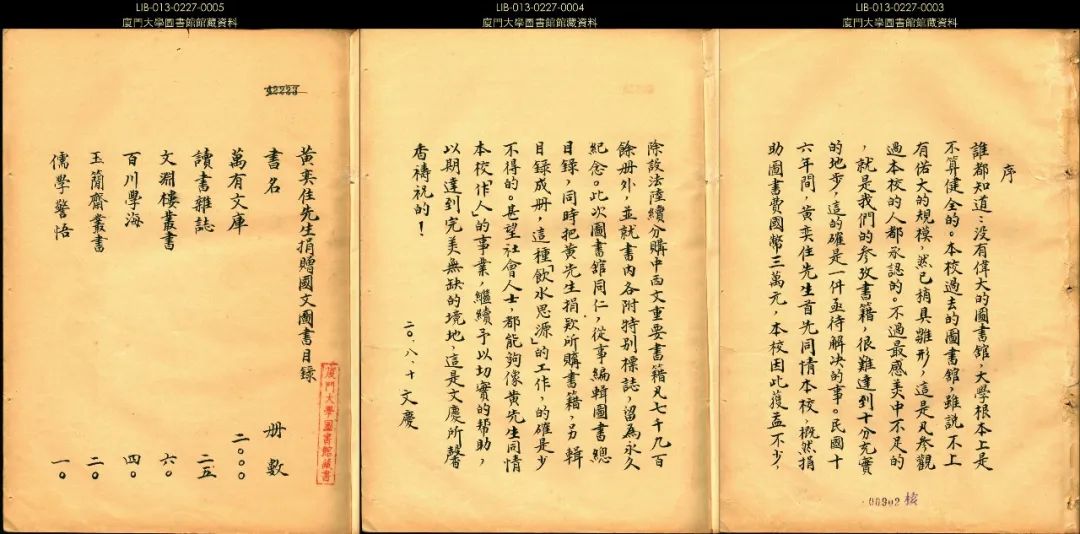 LIB-013-0227-0003
廈門大學圖書館館藏資料
序
誰都知道：没有偉大的圖書館，大學根本上是
不算健全的。本校過去的圖書舘，雖説不上
有偌大的規模，然已稍具雛形，這是凡參觀
過本校的人都承認的。不過最感美中不足的
，就是我們的參攷書籍，很難達到十分充實
的地步，這的確是一件亟待解決的事。民國十
六年間，黃奕住先生首先同情本校，慨然捐
助圖書費國幣三萬元，本校因此獲益不少，
核
LIB-013-0227-0004
廈門大學圖書館館藏資料
除設法陸續分購中西文重要書籍凡七千九百
餘册外，並就書内各附特别標誌，留為永久
紀念。此次圖書舘同仁，從事編輯圖書總
目録，同時把黃先生捐欵所購書籍，另輯
目録成册，這種「飲水思源」的工作，的確是少
不得的。甚望社會人士，都能夠像黃先生同情
本校「作人」的事業，繼續予以切實的帮助，
以期達到完美無缺的境地，這是文慶所馨
香禱祝的！
二〇.八.十 文慶
LIB-013-0227-0005
廈門大學圖書館館藏資料
廈門大學圖書館藏書
黃奕住先生捐贈國文圖書目録
書名 册數
萬有文庫 二〇〇〇
讀書雜誌 二五
文淵樓叢書 六〇
百川學海 四〇
玉簡齋叢書 二〇
儒學警悟 一〇